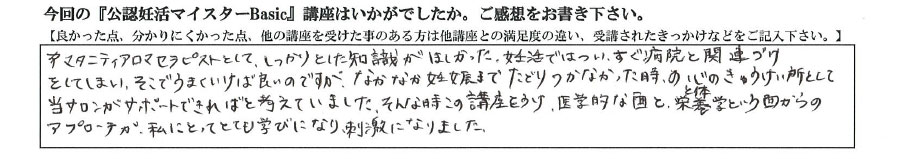 今回の『公認妊活マイスターBasic』講座はいかがでしたか。ご感想をお書き下さい。
【良かった点、分かりにくかった点、他の講座を受けた事のある方は他講座との満足度の違い、受講されたきっかけなどをご記入下さい。】
マタニティアロマセラピストとして、しっかりとした知識がほしかった。妊活ではつい、すぐ病院と関連づけ
をしてしまい、そこでうまくいけば良いのですが、なかなか妊娠までたどりつかなかった時、の心のきゅうけい所として
当サロンがサポートできればと考えていました。そんな時この講座をうけ、医学的な面と、栄養学という面からの
アプローチが、私にとってとても学びになり、刺激になりました。